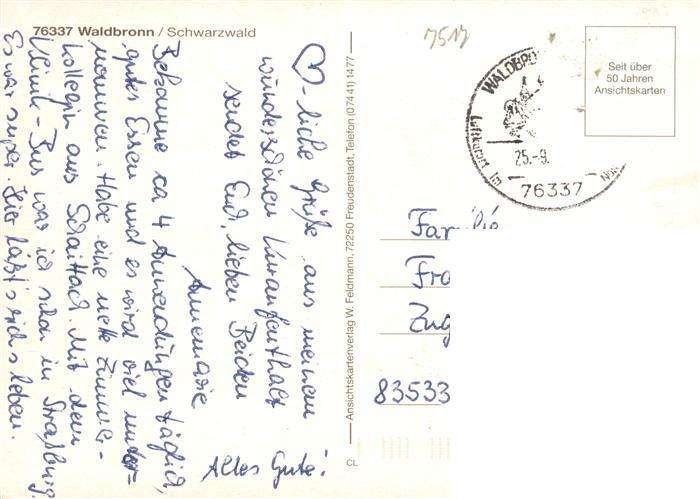 76337 Waldbronn / Schwarzwald
♡-liche Grüße aus meinem
wunderschönen Kuraufenthalt
sendet Euch, lieben Beiden
Annemarie
Bekomme ca 4 Anwendungen täglich,
gutes Essen und es wird viel unter-
nommen. Habe eine nette Zimmer-
kollegin aus Schaittach. Mit dem
Klinik-Bus war ich schon in Straßburg.
Es war super. Hier läßt's sich leben.
Alles Gute!
Ansichtskartenverlag W. Feldmann, 72250 Freudenstadt, Telefon (07441) 1477
CL
7517
WALDBRO
25.-9.
76337
Seit über
50 Jahren
Ansichtskarten
Familie
Fro
Zug
83533